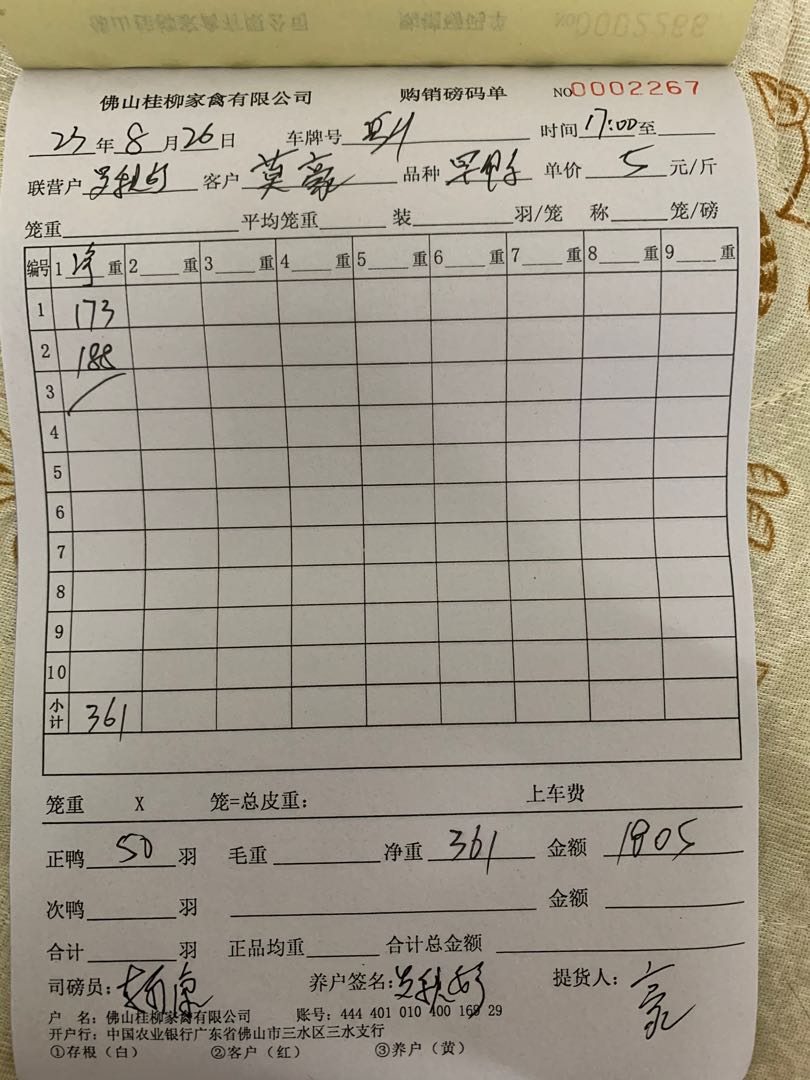 佛山桂柳家禽有限公司 购销磅码单 NO0002267
23年8月26日 车牌号 时间17:00至
联营户 客户 莫豪 品种 单价 5 元/斤
笼重 平均笼重 装 羽/笼 称 笼/磅
编号 1净重 2 重 3 重 4 重 5 重 6 重 7 重 8 重 9 重
1 173
2 188
3
4
5
6
7
8
9
10
小计 361
笼重 X 笼=总皮重： 上车费
正鸭 50 羽 毛重 净重 361 金额 1805
次鸭 羽 金额
合计 羽 正品均重 合计总金额
司磅员： 养户签名： 提货人：豪
户 名：佛山桂柳家禽有限公司 账号：444 401 010 400 169 29
开户行：中国农业银行广东省佛山市三水区三水支行
①存根（白） ②客户（红） ③养户（黄）